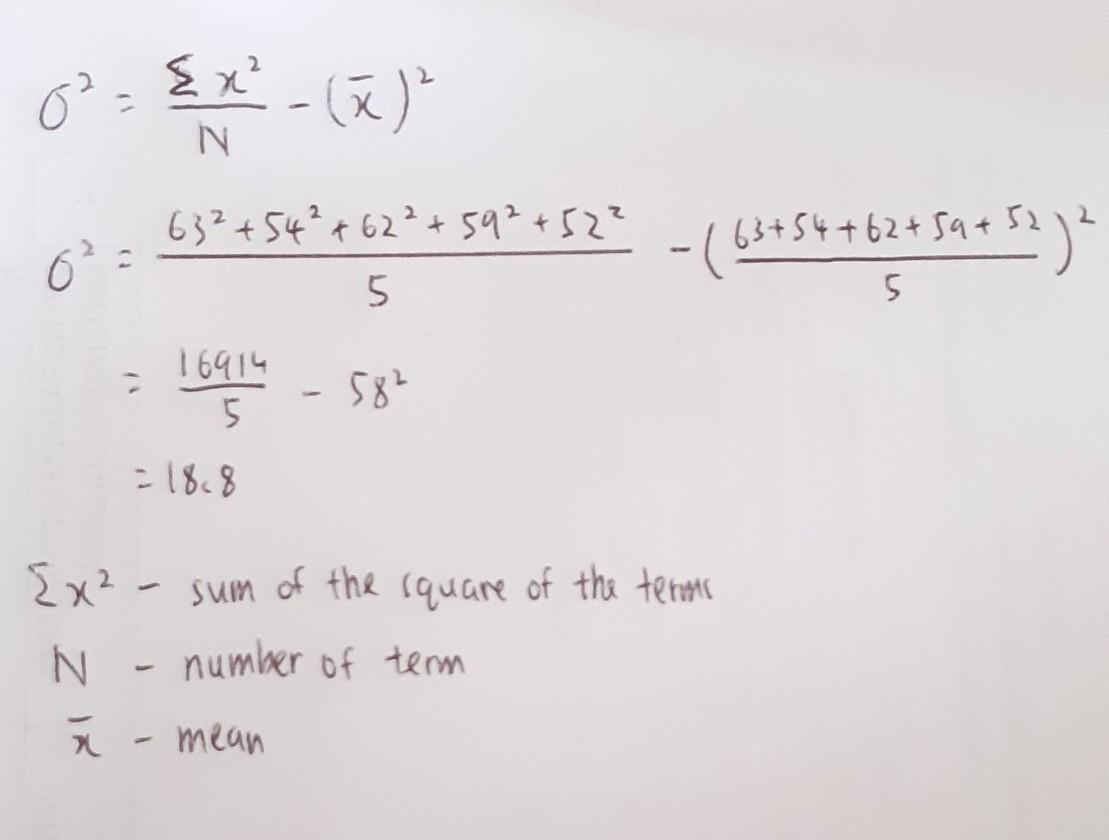 σ² = Σx²/N - (x̄)²
σ² = (63² + 54² + 62² + 59² + 52²)/5 - ((63+54+62+59+52)/5)²
= 16914/5 - 58²
= 18.8
Σx² - sum of the square of the terms
N - number of term
x̄ - mean